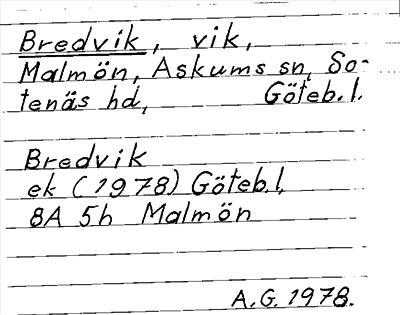 Bredvik, vik,
Malmön, Askums sn, So-
tenäs hd, Göteb.l.
Bredvik
ek (1978) Göteb.l.
8A 5h Malmön
A.G. 1978.